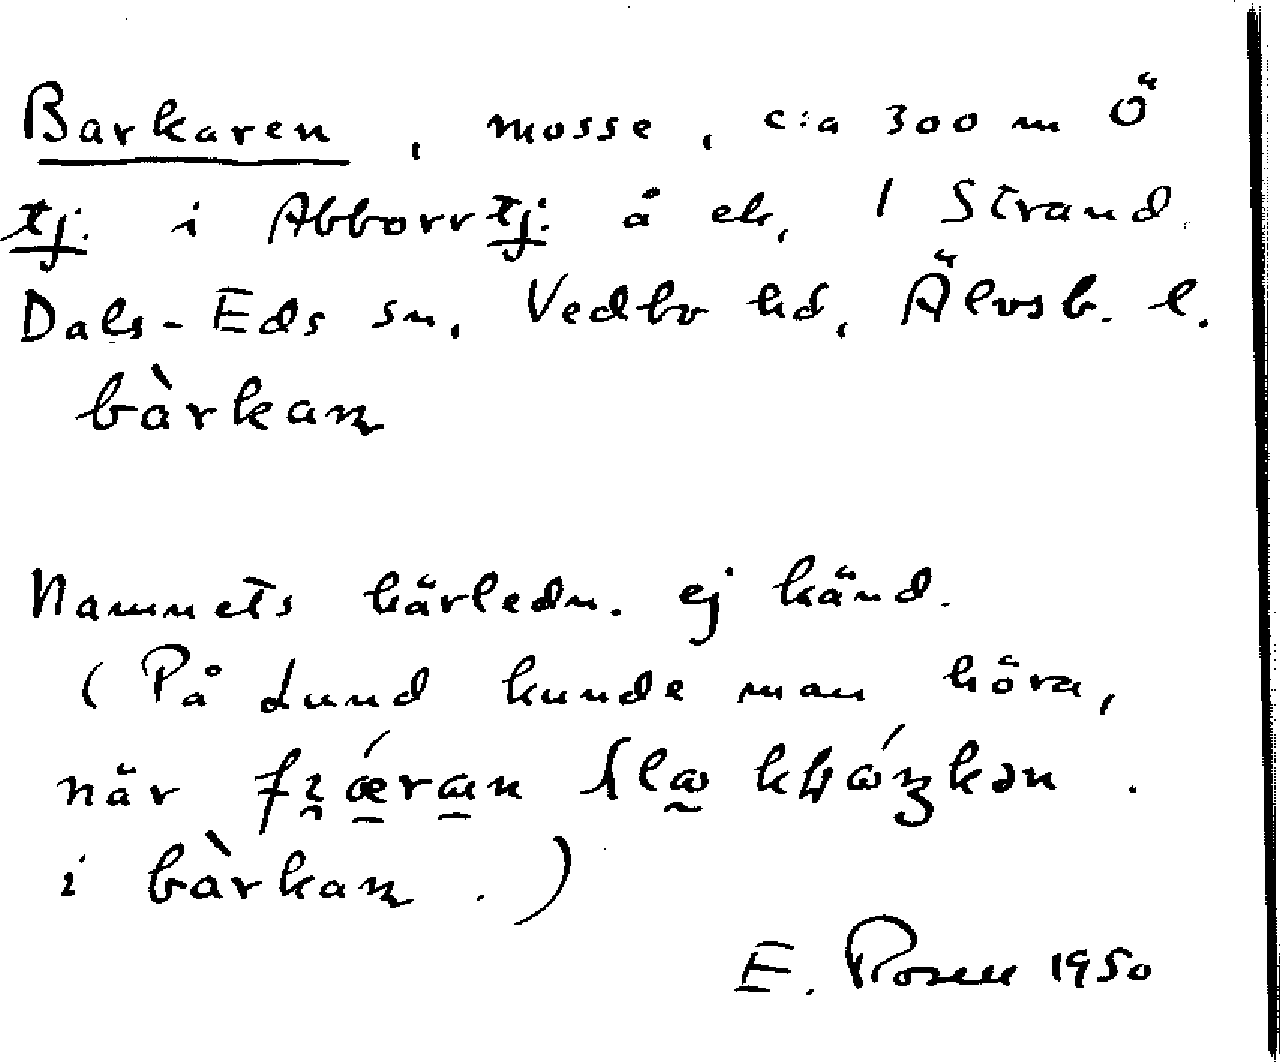 Barkaren, mosse, c:a 300 m Ö
tj. i Abborrtj. å ek, 1 Strand.
Dals-Eds sn, Vedbo hd, Älvsb. l.
bàrkaṇ
Namnets härledn. ej känd.
(På Lund kunde man höra,
när
i bàrkaṇ.)
E. Rosen 1950